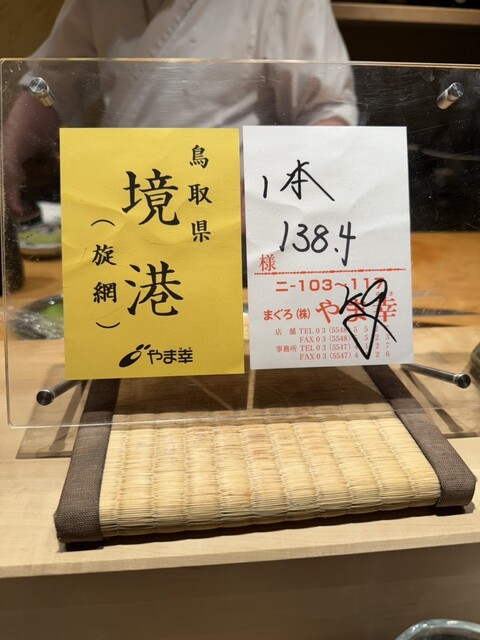 鳥取県
境港
（旋網）
やま幸
1本
138.4
様
ニ-103～117
まぐろ(株)やま幸
店 舗 TEL 03 (5548)
FAX 03 (5548)
事務所 TEL 03 (5547)
FAX 03 (5547)